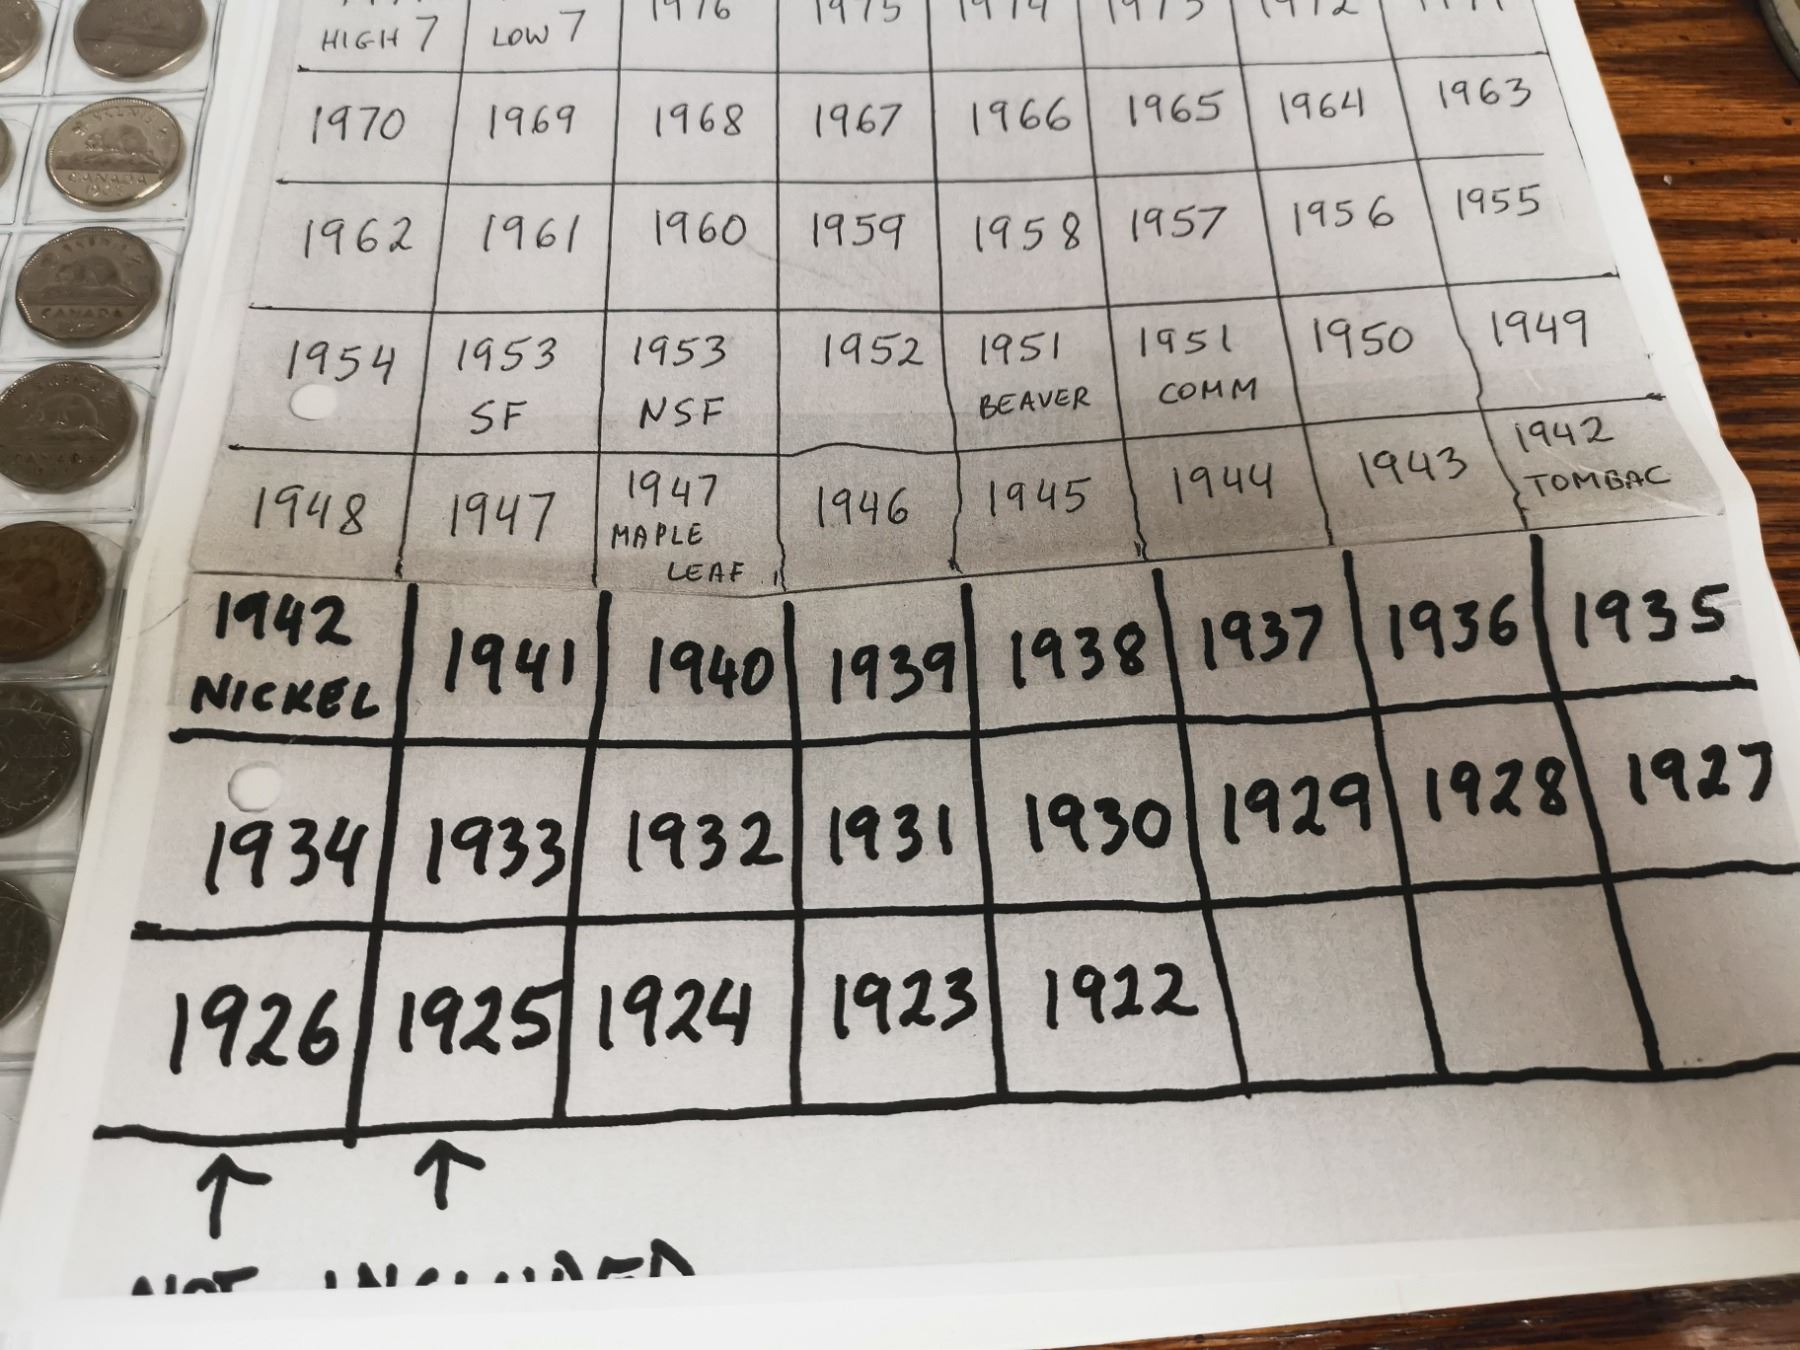 HIGH 7 LOW 7 1976 1975 1974 1973 1972 1971
1970 1969 1968 1967 1966 1965 1964 1963
1962 1961 1960 1959 1958 1957 1956 1955
1954 1953 SF 1953 NSF 1952 1951 BEAVER 1951 COMM 1950 1949
1948 1947 1947 MAPLE LEAF 1946 1945 1944 1943 1942 TOMBAC
1942 NICKEL 1941 1940 1939 1938 1937 1936 1935
1934 1933 1932 1931 1930 1929 1928 1927
1926 1925 1924 1923 1922
↑ ↑
NOT INCLUDED
CANADA
CANADA